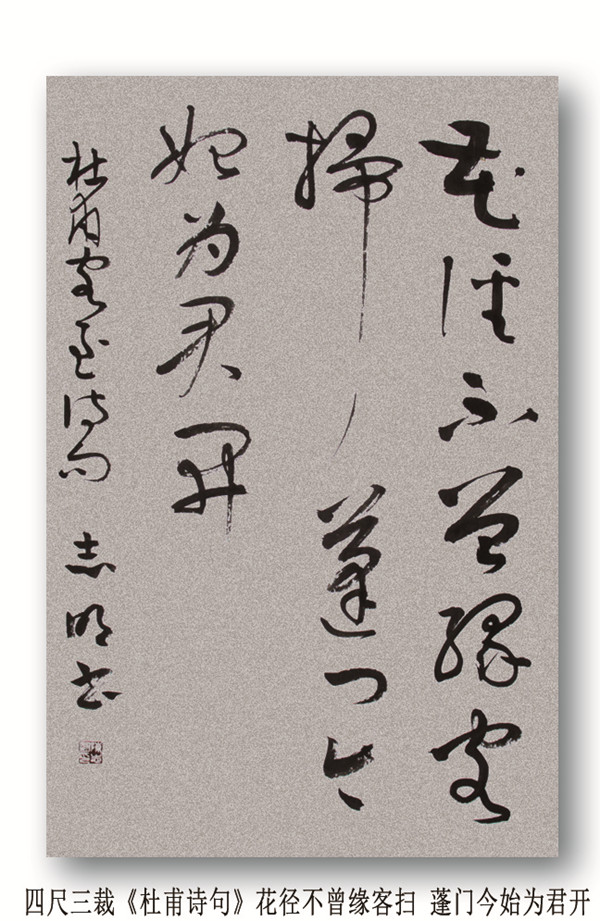 花径不曾缘客
掃蓬门今
始为君开
杜甫客至诗句 志明书
四尺三裁《杜甫诗句》花径不曾缘客扫 蓬门今始为君开